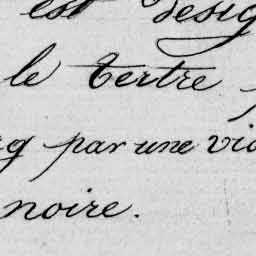 est désig
le tertre
par une
noire.